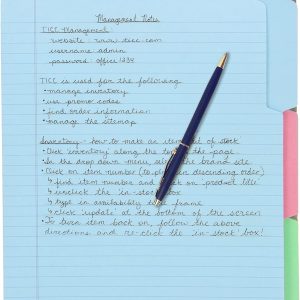 Management Notes
TICC Management:
website: www.ticc.com
username: admin
password: office1234
TICC is used for the following
• manage inventory
• use promo codes
• find order information
• manage the sitemap
Inventory - how to make an item out of stock
• Click inventory along the top of the page
• In the drop down menu, select the brand site
• Click on item number (to place in descending order)
↳ find item number and click on "product title"
↳ unclick the "in-stock" box
↳ type in availability time frame
↳ click "update" at the bottom of the screen
• To turn item back on, follow the above
directions and re-click the "in-stock" box!